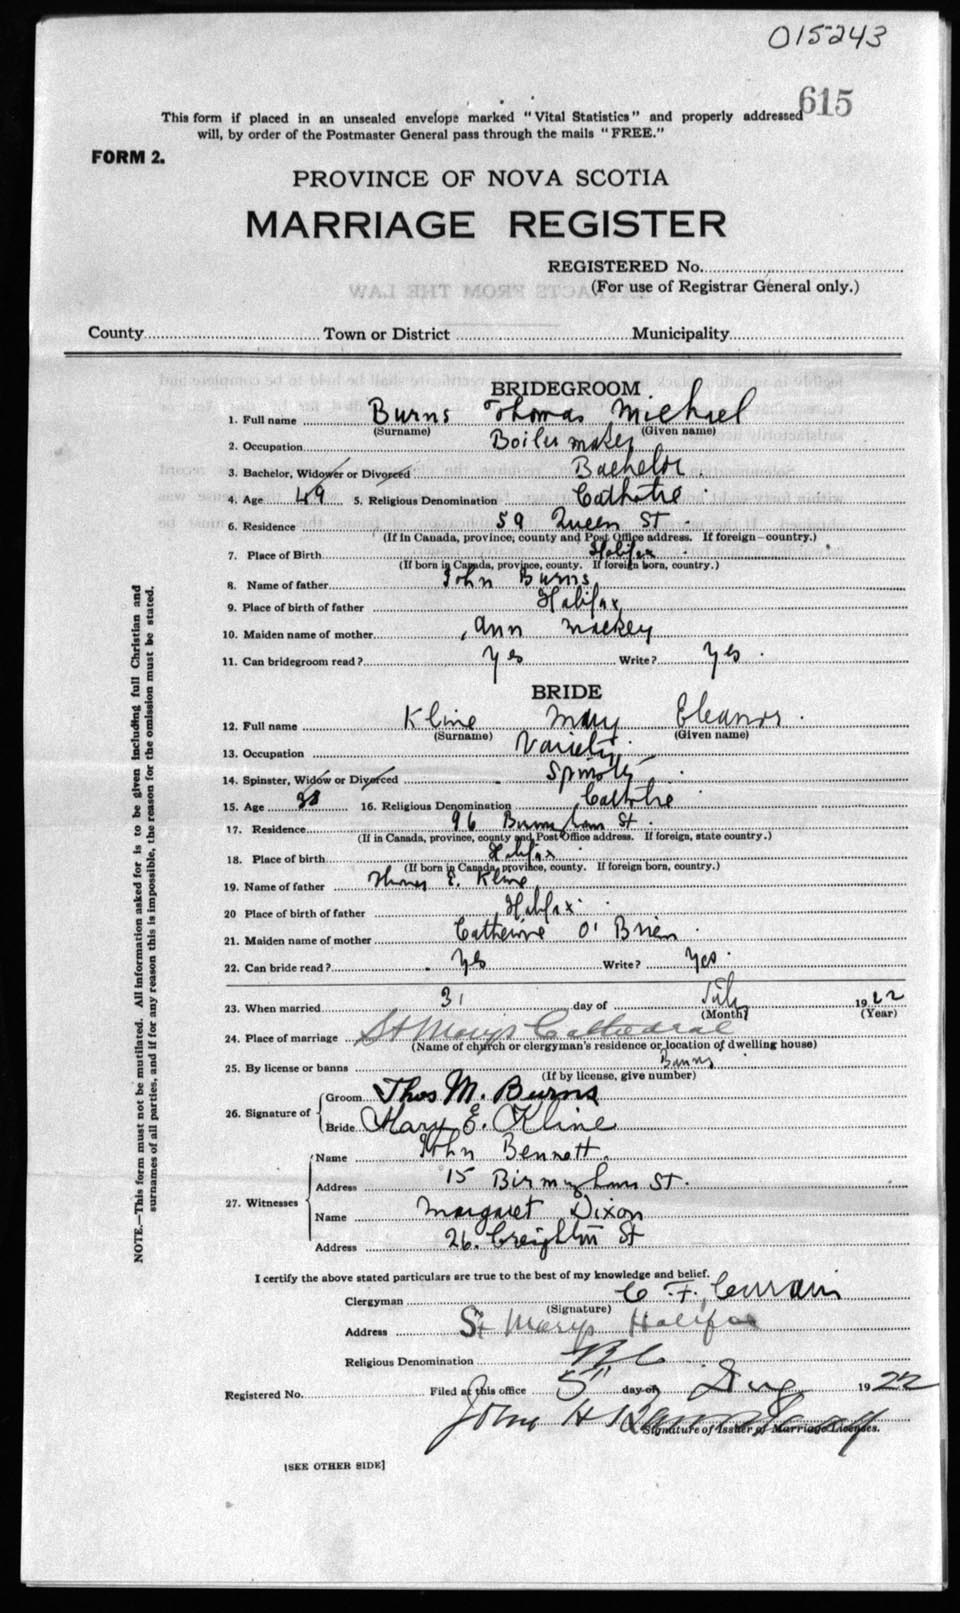 015243
615
This form if placed in an unsealed envelope marked "Vital Statistics" and properly addressed
will, by order of the Postmaster General pass through the mails "FREE."
FORM 2.
PROVINCE OF NOVA SCOTIA
MARRIAGE REGISTER
REGISTERED No.
(For use of Registrar General only.)
EXTRACTS FROM THE LAW
County Town or District Municipality
BRIDEGROOM
1. Full name Burns Thomas Michael
(Surname) (Given name)
2. Occupation Boilermaker
3. Bachelor, Widower or Divorced Bachelor
4. Age 49 5. Religious Denomination Catholic
6. Residence 59 Queen St.
(If in Canada, province, county and Post Office address. If foreign country.)
7. Place of Birth Halifax
(If born in Canada, province, county. If foreign born, country.)
8. Name of father John Burns
9. Place of birth of father Halifax
10. Maiden name of mother Ann Mackey
11. Can bridegroom read? Yes Write? Yes
BRIDE
12. Full name Kline Mary Eleanor
(Surname) (Given name)
13. Occupation Variety
14. Spinster, Widow or Divorced
15. Age 38 16. Religious Denomination Catholic
17. Residence 96 St.
(If in Canada, province, county and Post Office address. If foreign, state country.)
18. Place of birth Halifax
(If born in Canada, province, county. If foreign born, country.)
19. Name of father Thomas E. Kline
20 Place of birth of father Halifax
21. Maiden name of mother Catherine O'Brien
22. Can bride read? Yes Write? Yes
23. When married 31 day of July 1922
(Month) (Year)
24. Place of marriage St Marys Cathedral
(Name of church or clergyman's residence or location of dwelling house)
25. By license or banns Banns
(If by license, give number)
26. Signature of Groom Thos M. Burns
Bride Mary E. Kline
27. Witnesses Name John Bennett
Address 15 Birmingham St.
Name Margaret Dixon
Address 26 Creighton St
I certify the above stated particulars are true to the best of my knowledge and belief.
Clergyman C. F. Curran
(Signature)
Address St Marys Halifax
Religious Denomination R C
Registered No. Filed at this office 5" day of Aug 1922
John H
Signature of Issuer of Marriage Licenses.
[SEE OTHER SIDE]
NOTE.—This form must not be mutilated. All information asked for is to be given including full Christian and
surnames of all parties, and if for any reason this is impossible, the reason for the omission must be stated.